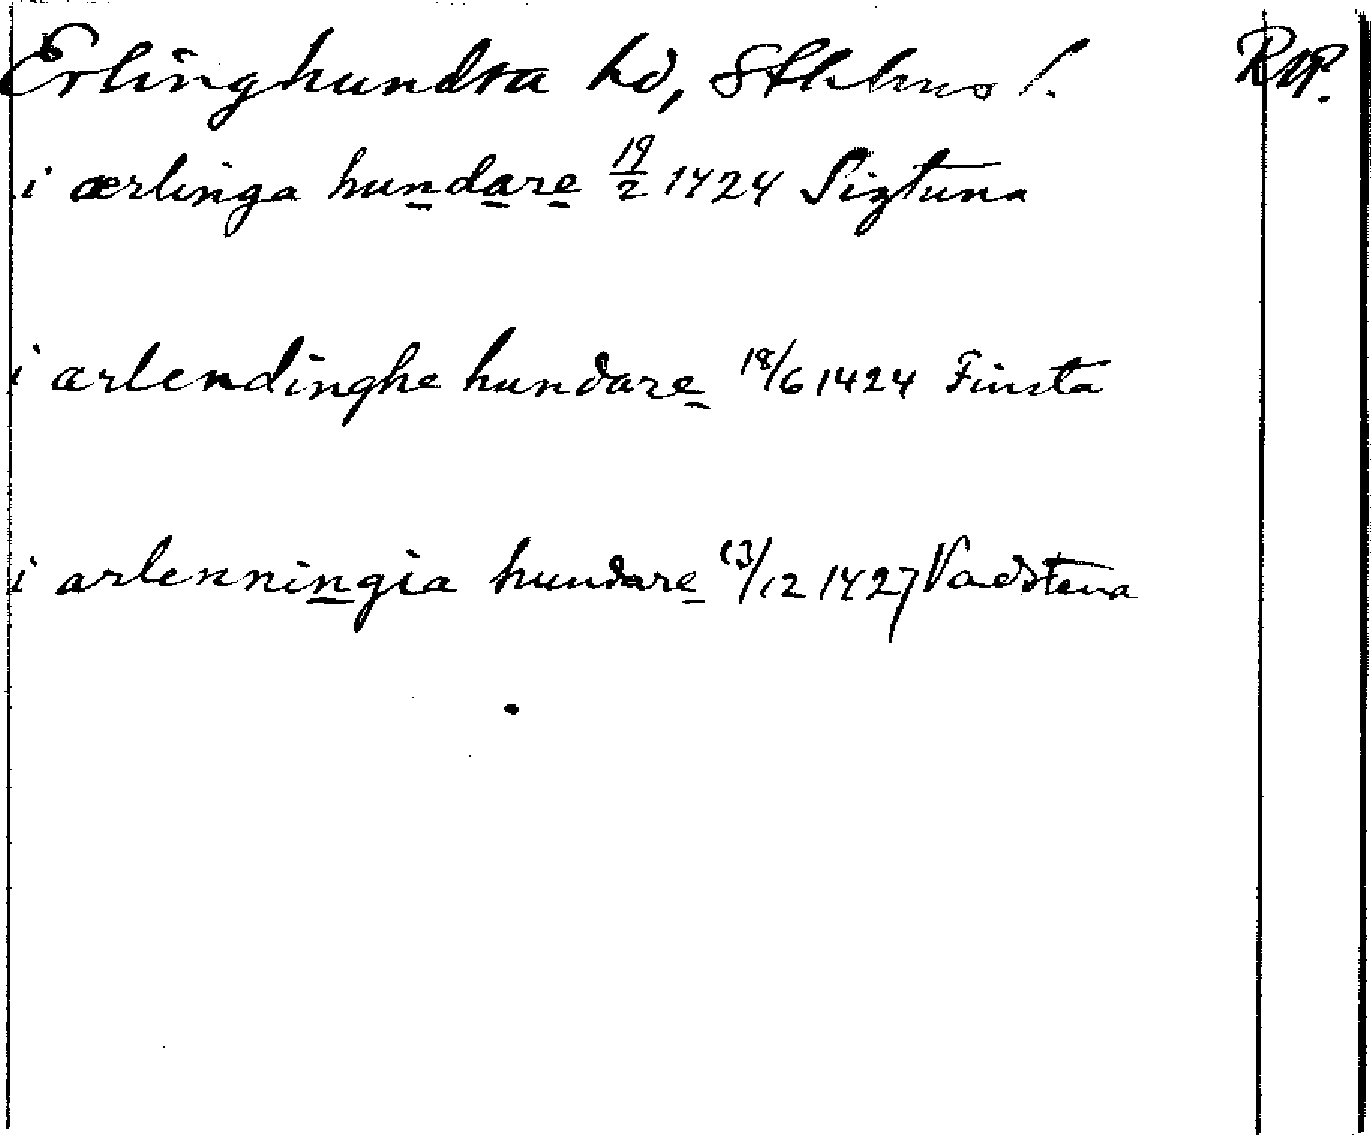 Erlinghundra hd, Sthlms l. RAP.
i ærlinga hundare 19/2 1424 Sigtuna
i ærlendinghe hundare 18/6 1424 Finsta
i ærlenningia hundare 13/12 1427 Vadstena